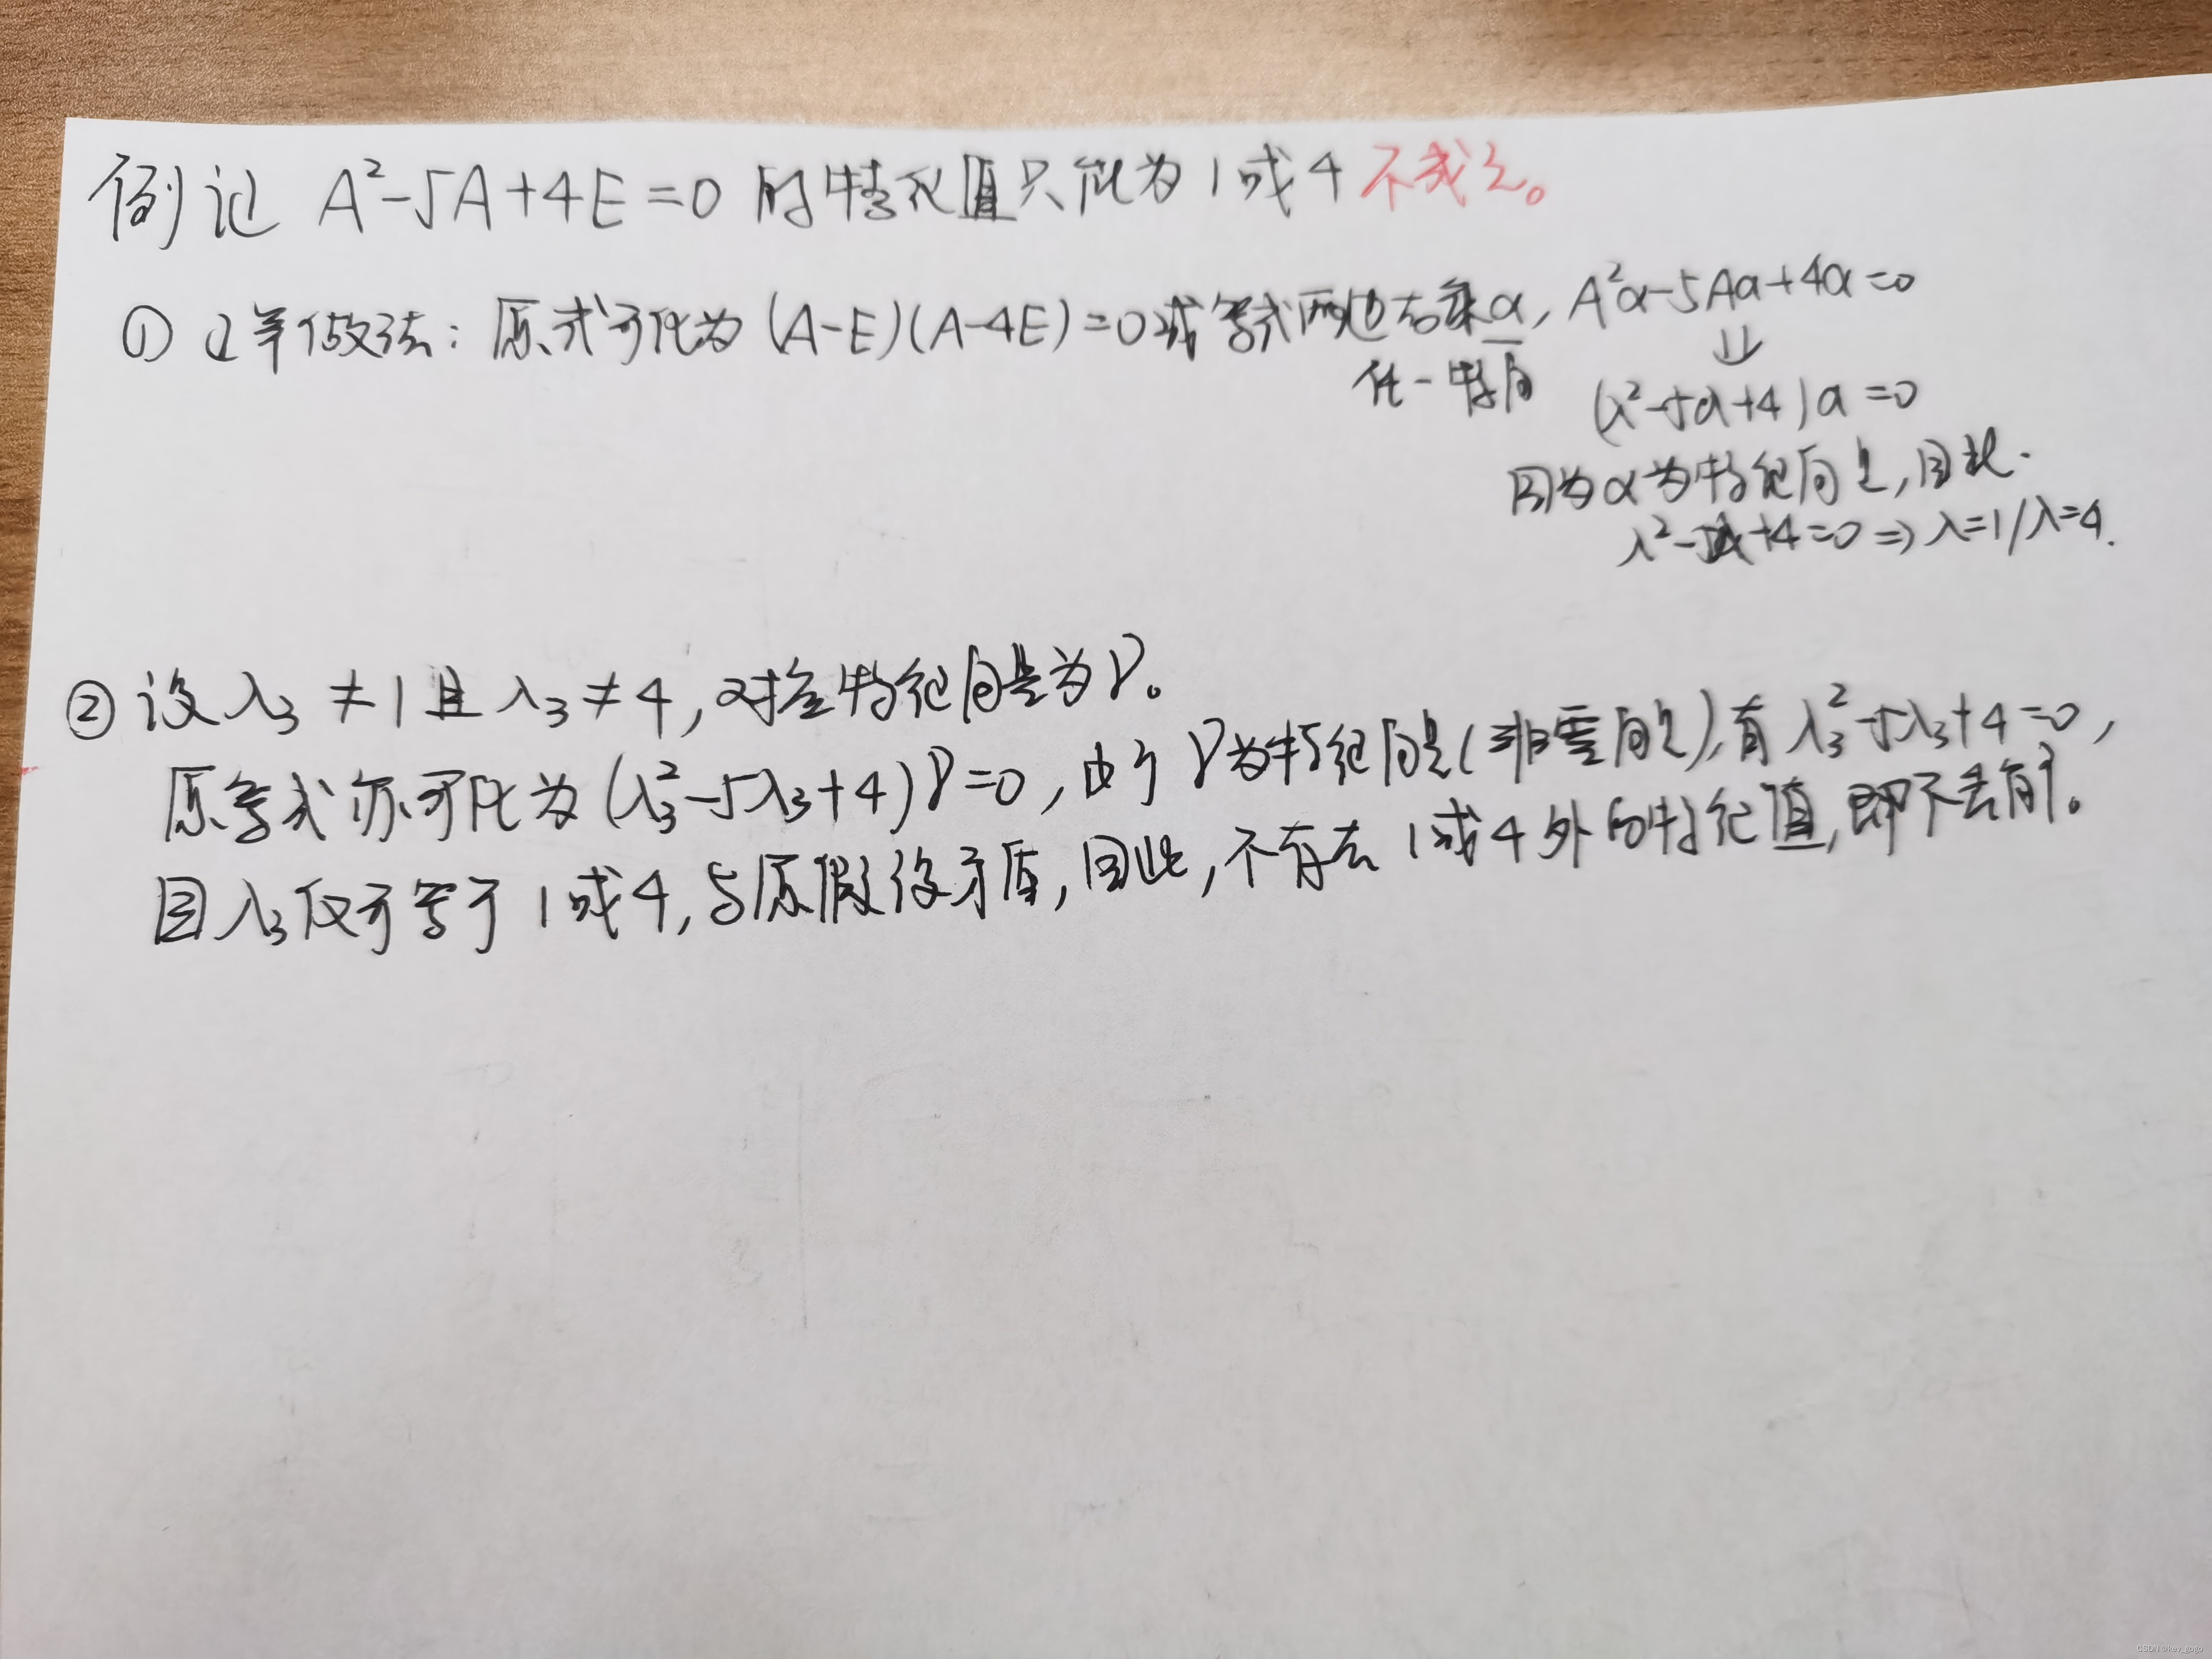 例 证 A²-5A+4E=0 的特征值只能为1或4 不成立。
① 这样做法：原式可化为(A-E)(A-4E)=0或等式两边右乘α, A²α-5Aα+4α=0
任一特向
⇓
(λ²-5λ+4)α=0
因为α为特征向量,因此.
λ²-5λ+4=0⇒λ=1/λ=4.
② 设λ₃≠1且λ₃≠4,对应特征向量为γ。
原等式亦可化为(λ₃²-5λ₃+4)γ=0,由于γ为特征向量(非零向量),有λ₃²-5λ₃+4=0,
因λ₃仅可等于1或4,与原假设矛盾,因此,不存在1或4外的特征值,即不丢解。
CSDN @key_gogo